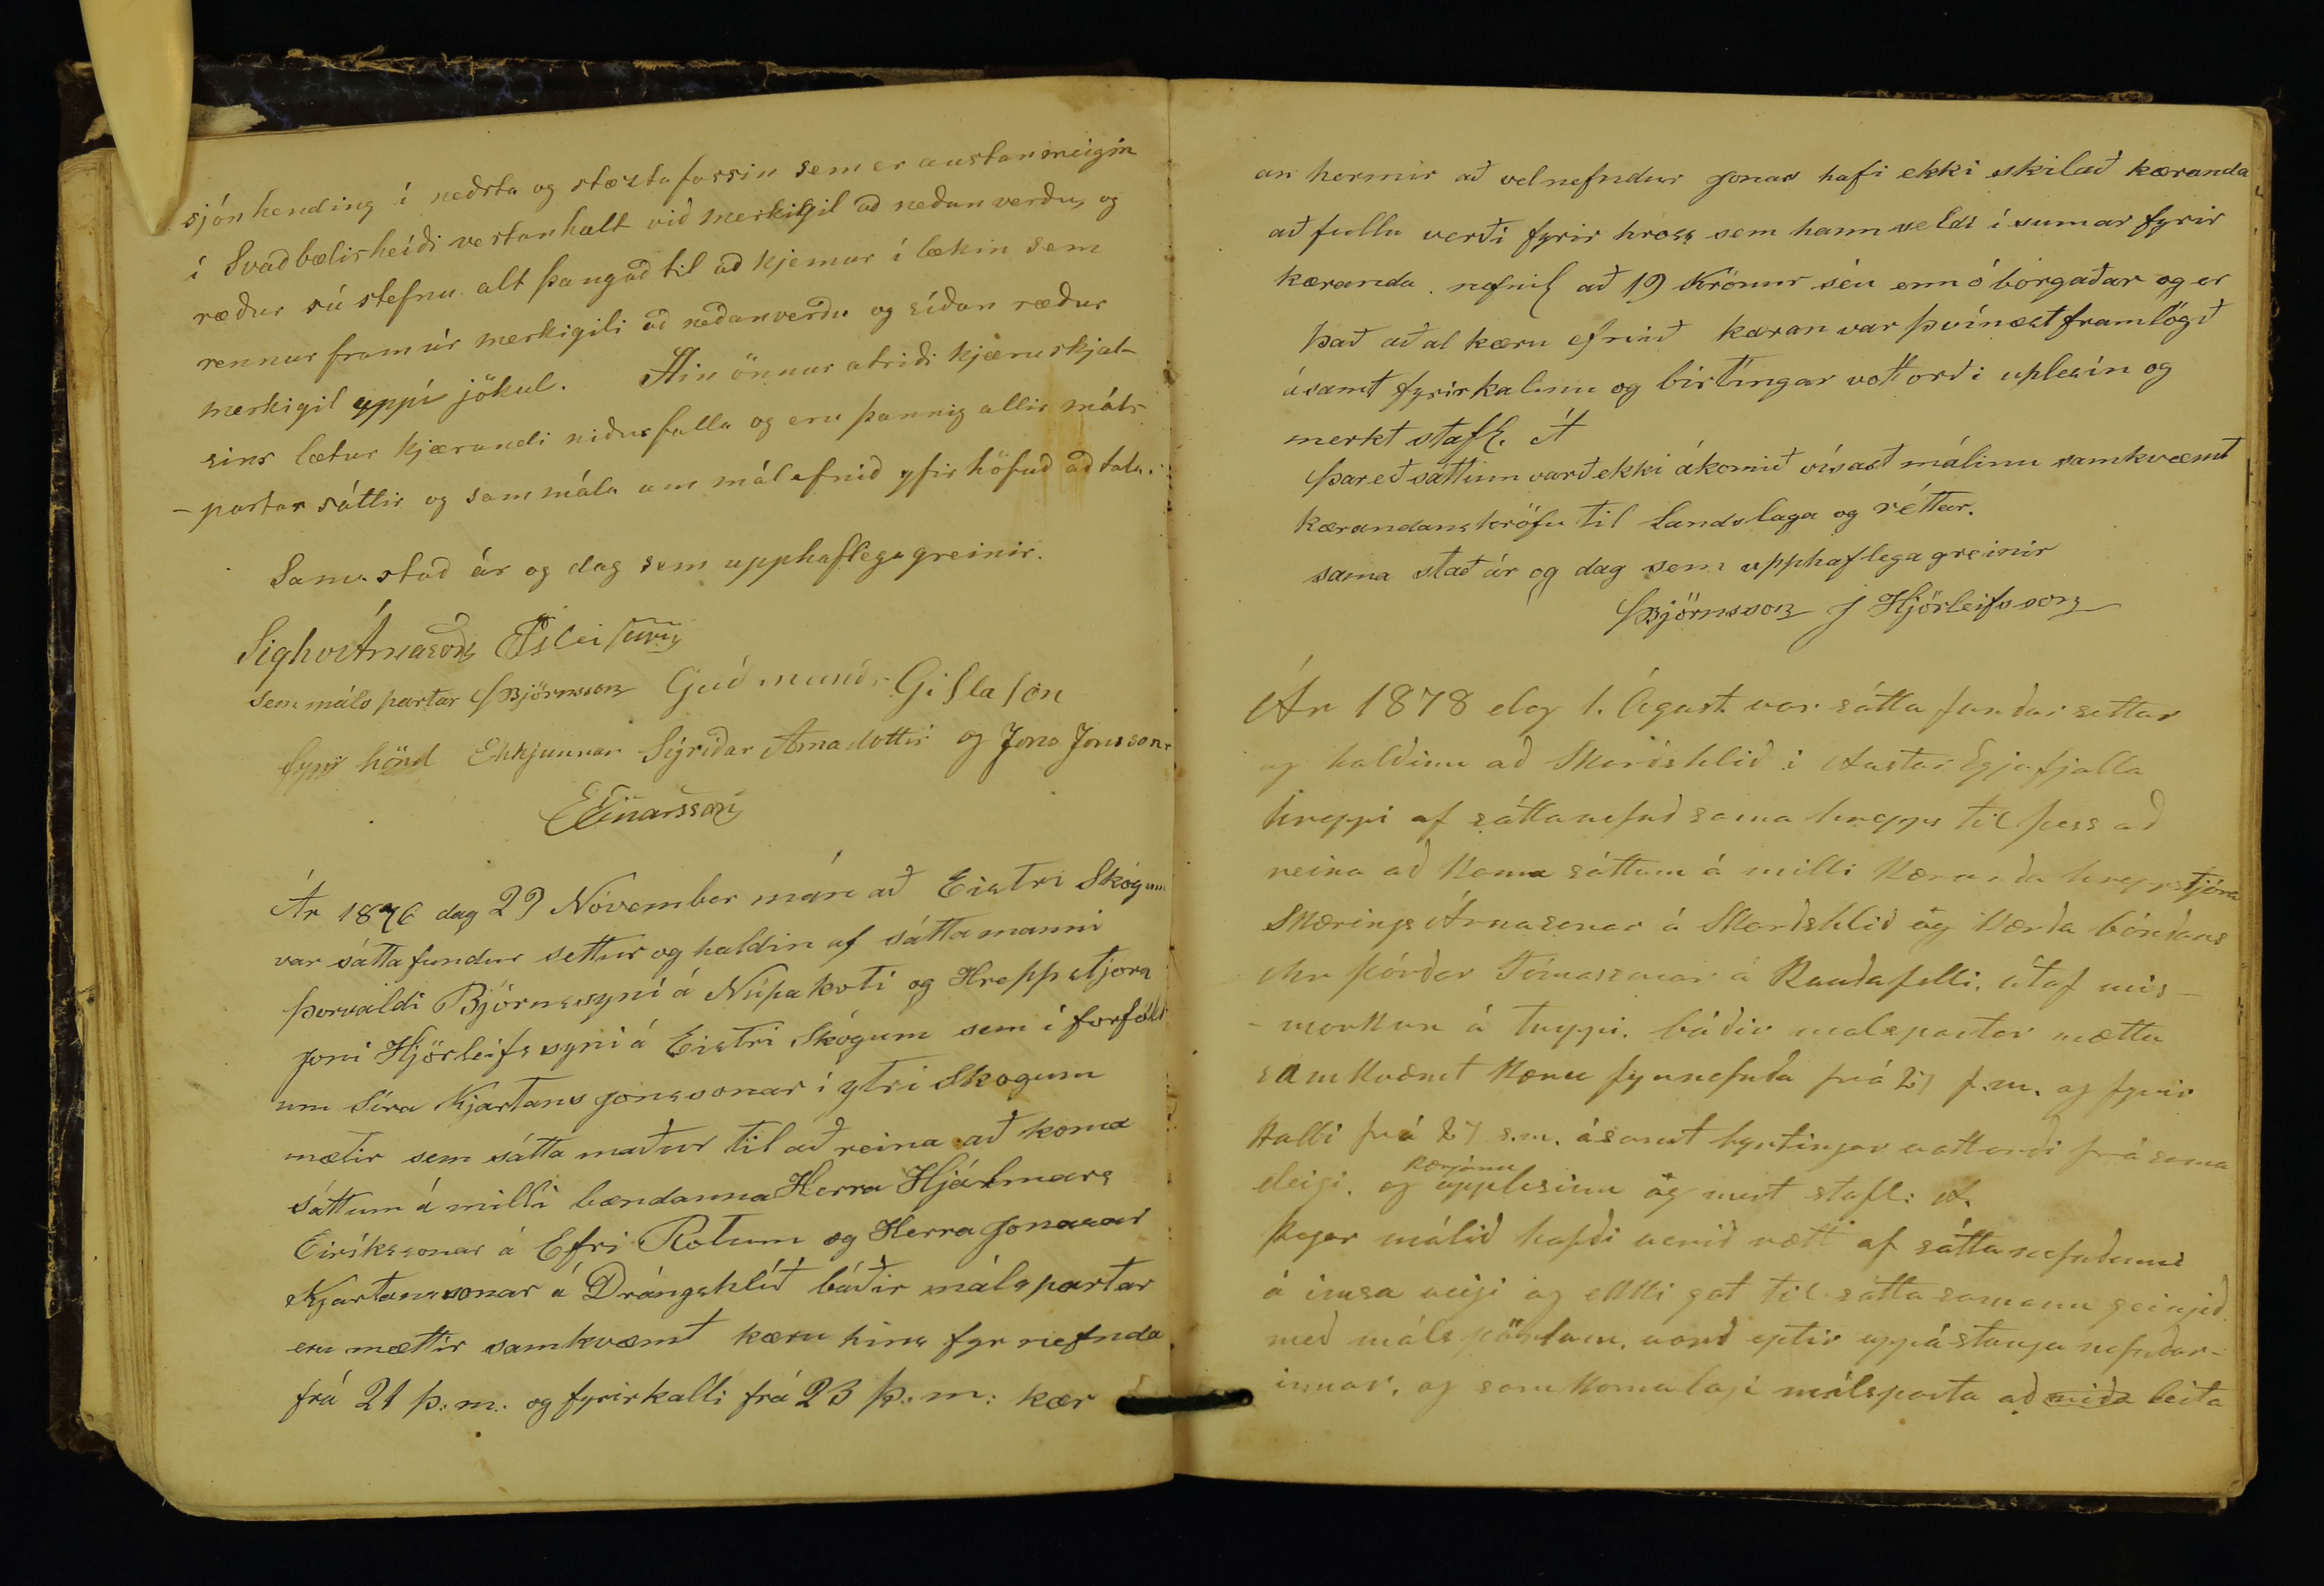 sjónhending í neðsta og stærsta fossin sem er austanmeigin
í Svaðbælisheiði vestanhalt við merkigil að neðanverðu, og
ræður sú stefna alt þangað til að kjemur í lækin sem
rennur fram úr merkigili að neðanverðu og síðan ræður
merkigil uppí jökul. Hin önnur atriði kjæruskjal-
sins lætur kjærandi niðurfalla og eru þannig allir máls-
-partar sáttir og sammála um málefnið yfir höfuð að tala.
Sama stað ár og dag sem upphaflega greinir.
Sighv Árnason
sem máls partar ÞBjörnsson Guðmundr Gislason
fyrir hönd Ekkjunnar Sýriðar Arnadottir og Jons Jonssonr
EEinarsson
Ár 1876 dag 29 Nóvember mán að Eistri Skógum
var sáttafundur settur og haldin af sáttamanni
Þorvaldi Björnssyni á Núpakoti og Hreppstjora
Joni Hjörleifssyni á Eistri Skógum sem í forföll
um Síra Kjartans Jonssonar í ytri Skogum
mætir sem sátta maður til að reina að koma
sáttum á milli bændanna Herra Hjálmars
Eiríkssonar á Efri Rotum og Herra Jonasar
Kjartanssonar á Drángshlíð báðir málspartar
eru mættir samkvæmt kæru hins fyr nefnda
frá 21 þ: m: og fyrirkalli frá 23 þ: m: kær
an hermir að velnefndur Jonas hafi ekki skilað kæranda
að fullu verði fyrir hross sem hann seldi í sumar fyrir
kæranda. nefnil að 19 Krónur séu enn óborgaðar og er
það aðal kæru efnið kæran var þvínæst framlögð
ásamt fyrirkalinu og birtíngar vottorði uplesin og
merkt stafl. A
Þareð sáttum varð ekki ákomið vísast málinu samkvæmt
kærandans kröfu til Landslaga og réttar.
sama stað ár og dag sem upphaflega greinir
ÞBjörnsson J Hjörleifsson
Ár 1878 dag 1. Águst var sátta fundur settur
og haldinn að Skarðshlið í Austur Eyjafjalla
hreppi af sáttanefnd sama hrepps til þess að
reina að koma sáttum á milli kæranda hreppstjóra
Skærings Árnasonar á Skarðshlið og kærða bóndans
hr Þórðar Tómassonar á Rauðafelli, útaf mis-
-mörkun á tryppi. báðir malspartar mættu
samkvæmt kæru fyrnefnda frá 27 f.m. og fyrir
kalli frá 27 s.m. ásamt byrtingar vottorði frá sama
deigi. og kærunni upplesinn og merkt stafl: A.
Þegar málið hafði verið rætt af sáttanefndinni
á imsa vegi og ekki gat til sátta saman geingið
með máls pörtum, varð eptir uppástungu nefndar-
innar, og samkomulagi málsparta að miða leita